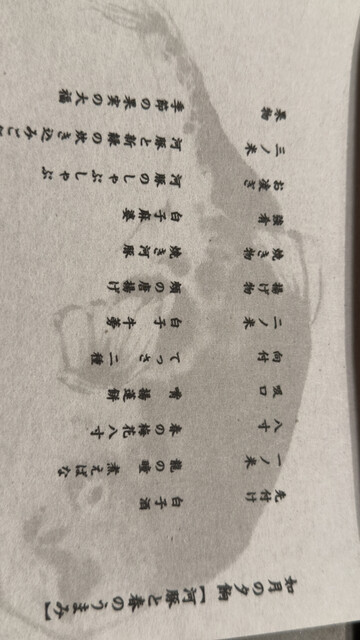 如月の夕餉【河豚と春のうまみ】
先付け 白子酒
一ノ米 龍の瞳 煮えばな
八寸 春の梅花八寸
吸口 揚蓮餅
向付 てっさ二種
二ノ米 白子牛蒡
揚げ物 頬の唐揚げ
焼き物 焼き河豚
強肴 白子麻婆
お凌ぎ 河豚のしゃぶしゃぶ
三ノ米 河豚と新緑の炊き込みご
果物 季節の果実の大福